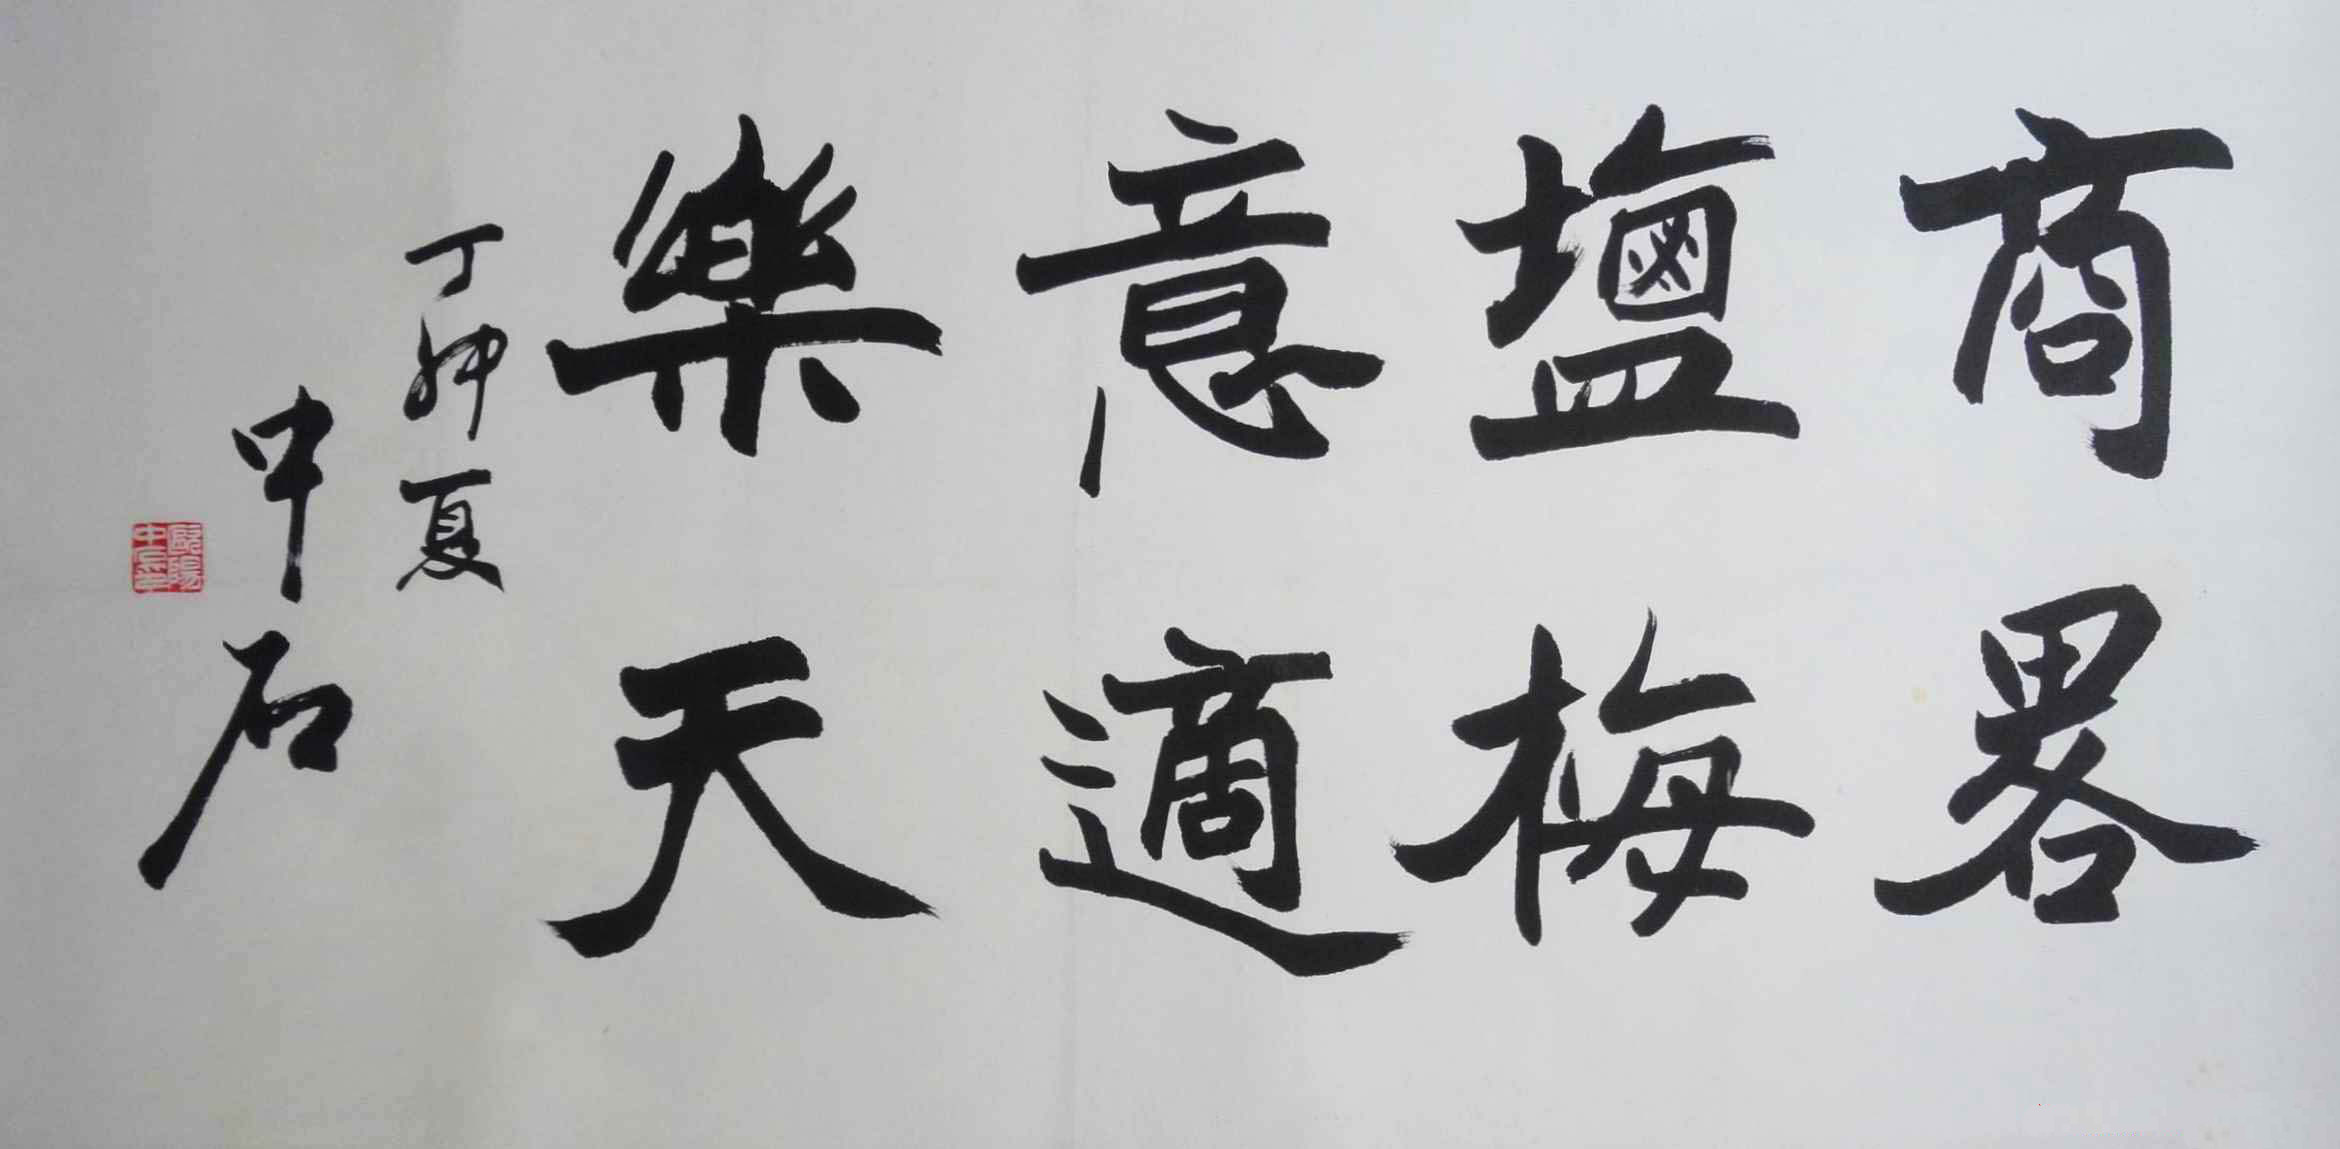 商畧
塩梅
意適
樂天
丁卯夏
中石
歐陽
中石